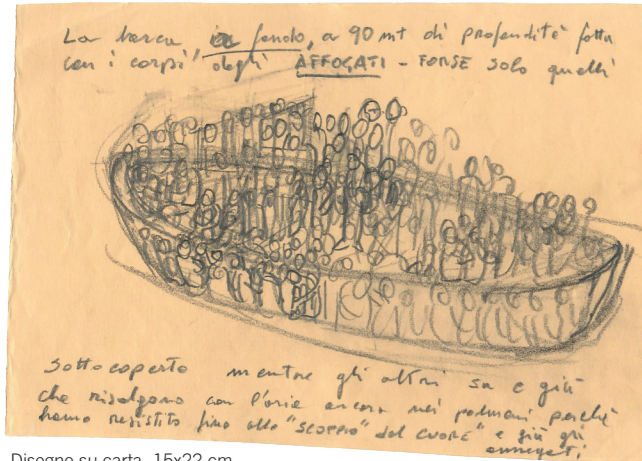 La barca in fondo, a 90 mt di profondità fatta
con i corpi degli AFFOGATI - FORSE solo quelli
Sottocoperta mentre gli altri su e giù
che risalgono con l'aria ancora nei polmoni perché
hanno resistito fino allo "SCOPPIO" del CUORE" e giù gli
annegati
Disegno su carta, 15x22 cm